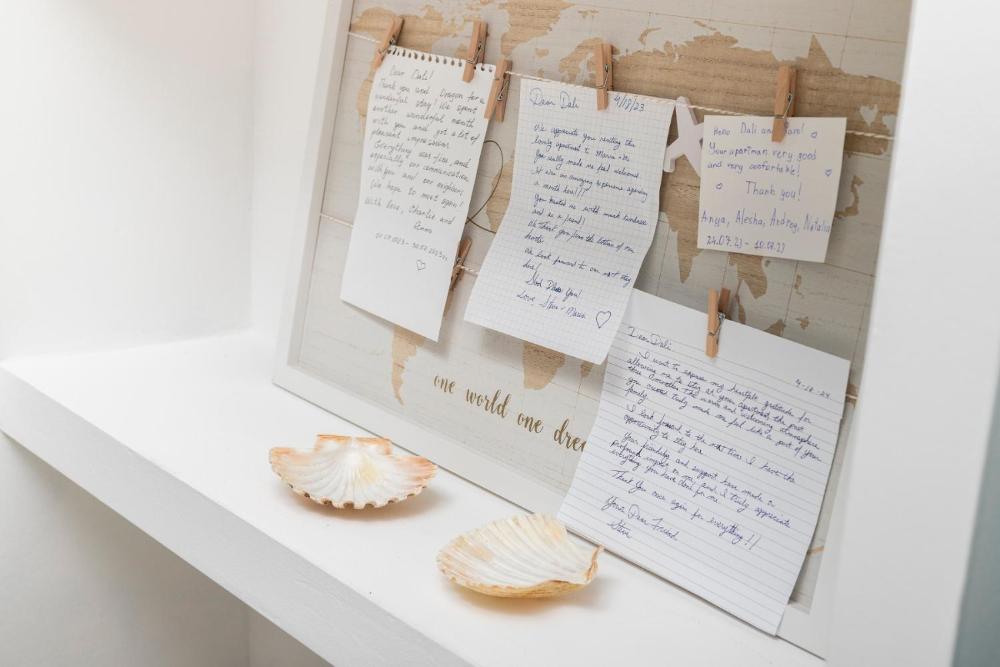 Dear Dali!
Thank you and Dragon for a
wonderful stay! We spent
another wonderful month
with you and got a lot of
pleasant impression.
Everything was fine, and
especially our communication
with you and our neighbors.
We hope to meet again!
With love, Charlie and
Dear Dali 4/18/23
We appreciate you renting the
lovely apartment to Maria & me
You really made me feel welcomed.
It was an amazing experience spending
a month here!!!
You treated us with much kindness
and as a friend!
We thank you from the bottom of our
hearts
We look forward to our next stay
here!
God Bless You!
Love, Steve & Maria
Dear Dali and
Your apartman very good
and very comfortable!
Thank you!
Anya, Alesha, Andrey, Natalia
24.07.23 - 10.08.23
one world one drea
Dear Dali 4-18-24
I want to express my heartfelt gratitude for
allowing me to stay at your apartment the past
three months. The warm and welcoming atmosphere
you created truly made me feel like a part of your
family.
I look forward to the next time I have the
opportunity to stay here
Your friendship and support have made a
profound impact on me, and I truly appreciate
everything you have done for me.
Thank You once again for everything!!
Your Dear Friend
Steve